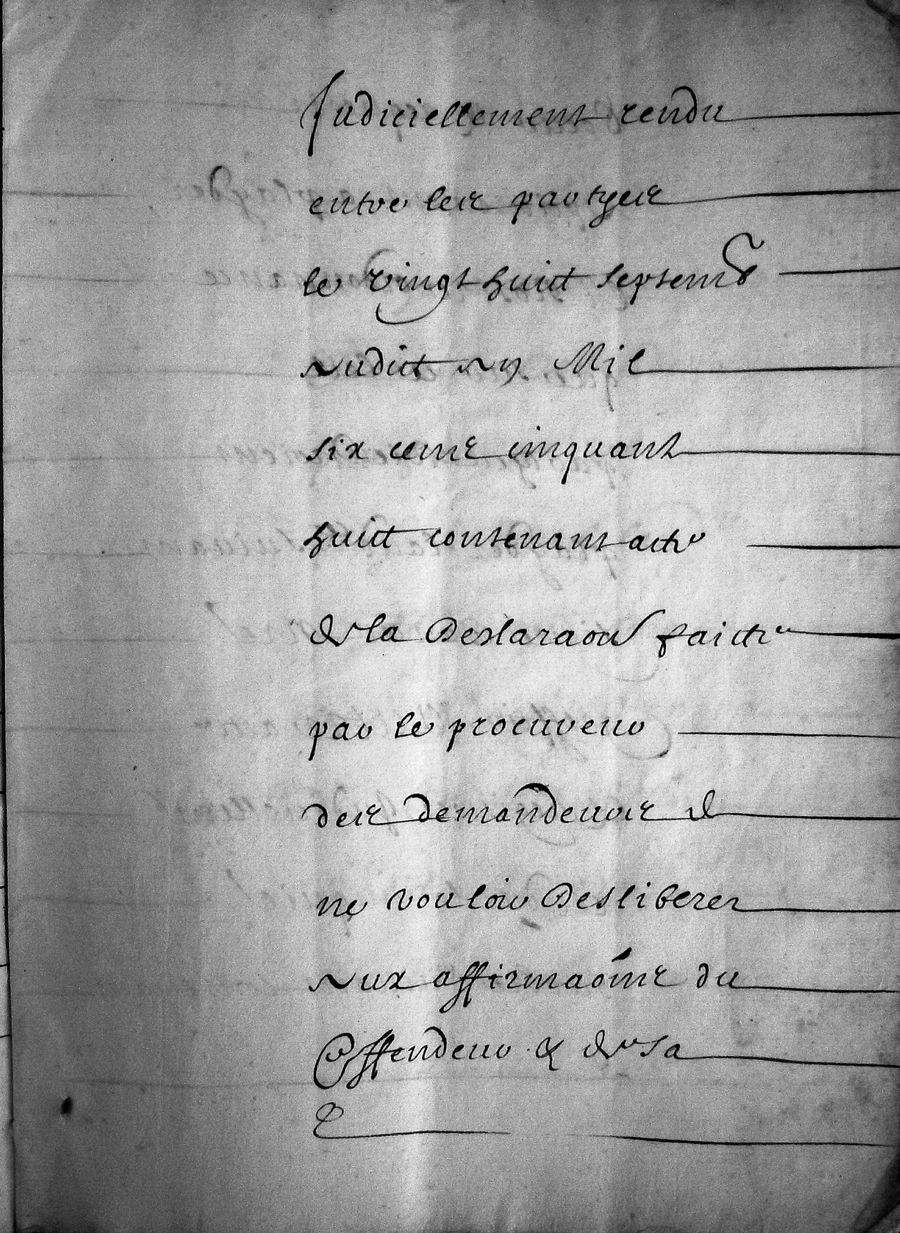 Judiciellement rendu
entre les partyes
le vingt huict septemb
audict an Mil
six cens cinquant
huict contenant acte
de la Desclaraon faicte
par le procureur
des demandeurs de
ne vouloir Desliberer
aux affirmaons du
Deffendeur & de sa